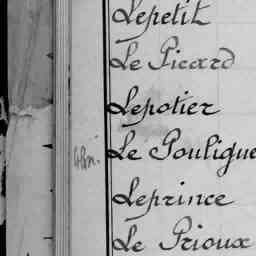 Lepetit
Le Picard
Lepotier
Le Pouligue
Leprince
Le Prioux